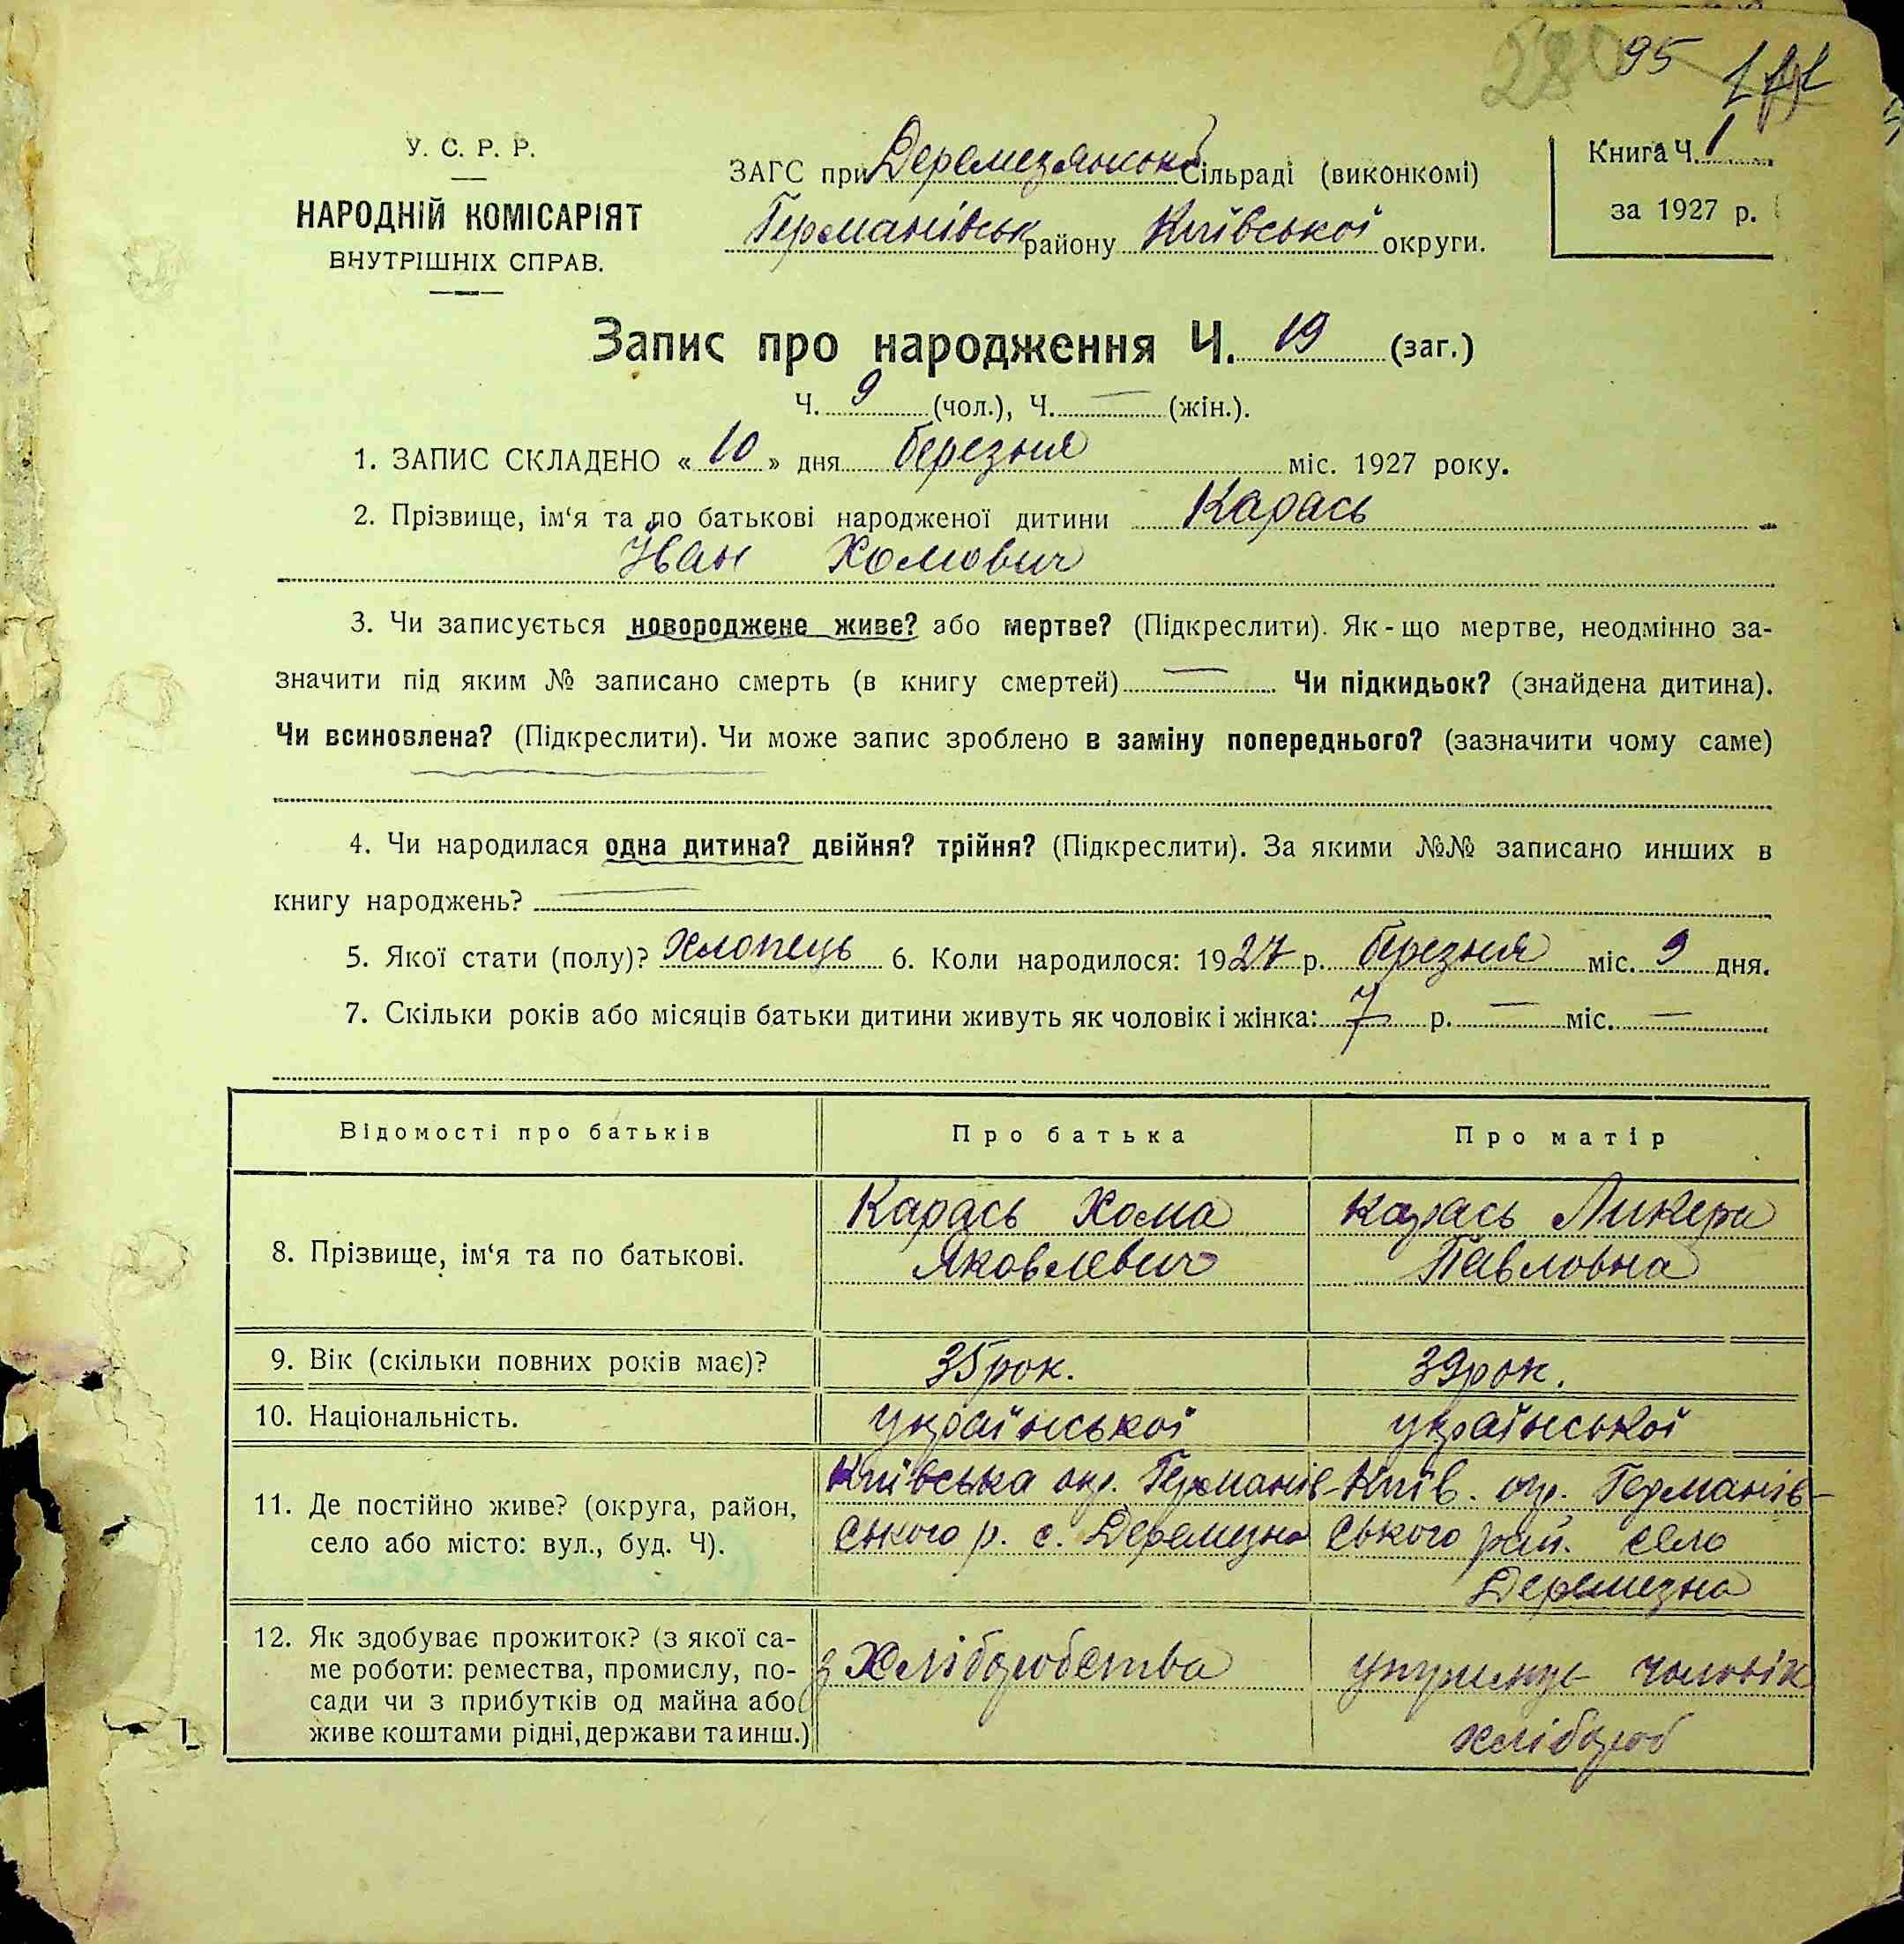 95
У. С. Р. Р.
НАРОДНІЙ КОМІСАРІЯТ
ВНУТРІШНІХ СПРАВ.
ЗАГС при Деремезянській Сільраді (виконкомі)
Германівськ району Київської округи.
Книга Ч. 1
за 1927 р.
Запис про народження Ч. 19 (заг.)
Ч. 9 (чол.), Ч. — (жін.).
1. ЗАПИС СКЛАДЕНО « 10 » дня березня міс. 1927 року.
2. Прізвище, ім‘я та по батькові народженої дитини Карась
Іван Хомович
3. Чи записується новороджене живе? або мертве? (Підкреслити). Як-що мертве, неодмінно за-
значити під яким № записано смерть (в книгу смертей) — Чи підкидьок? (знайдена дитина).
Чи всиновлена? (Підкреслити). Чи може запис зроблено в заміну попереднього? (зазначити чому саме)
4. Чи народилася одна дитина? двійня? трійня? (Підкреслити). За якими №№ записано инших в
книгу народжень? —
5. Якої стати (полу)? Хлопець 6. Коли народилося: 1927 р. березня міс. 9 дня.
7. Скільки років або місяців батьки дитини живуть як чоловік і жінка: 7 р. — міс. —
Відомості про батьків Про батька Про матір
8. Прізвище, ім‘я та по батькові.
Карась Хома
Яковлевич
Карась Ликера
Павловна
9. Вік (скільки повних років має)? 35 рок. 39 рок.
10. Національність. української української
11. Де постійно живе? (округа, район,
село або місто: вул., буд. Ч).
Київська окр. Германів-
ського р. с. Деремезна
Київ. окр. Германів-
ського рай. село
Деремезна
12. Як здобуває прожиток? (з якої са-
ме роботи: ремества, промислу, по-
сади чи з прибутків од майна або
живе коштами рідні, держави та инш.)
з Хліборобства
утримує чоловік
хлібороб